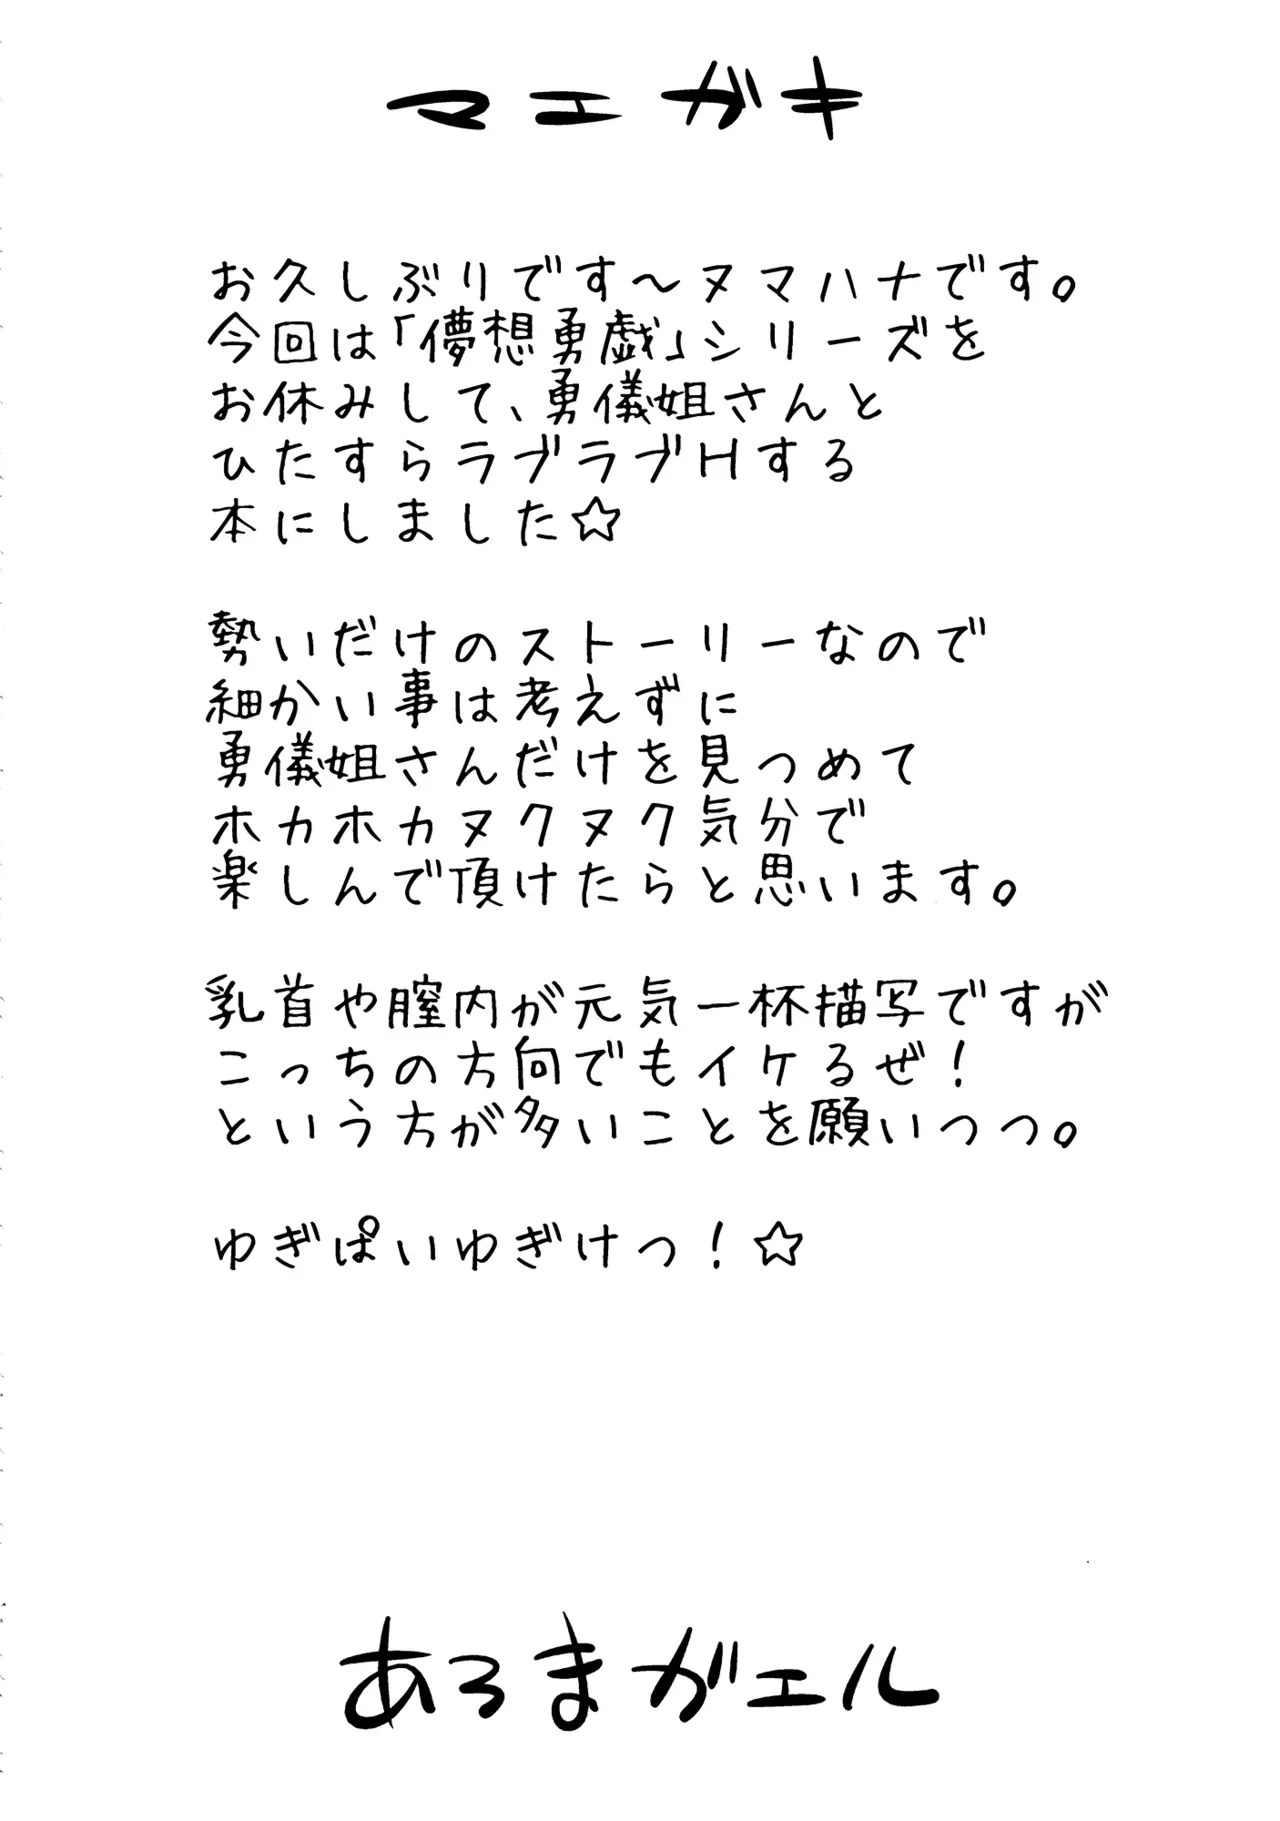 マエガキ
お久しぶりです～ヌマハナです。
今回は「儚想勇戯」シリーズを
お休みして、勇儀姐さんと
ひたすらラブラブHする
本にしました☆
勢いだけのストーリーなので
細かい事は考えずに
勇儀姐さんだけを見つめて
ホカホカヌクヌク気分で
楽しんで頂けたらと思います。
乳首や膣内が元気一杯描写ですが
こっちの方向でもイケるぜ!
という方が多いことを願いつつ。
ゆぎぱいゆぎけっ!☆
あろまがエル